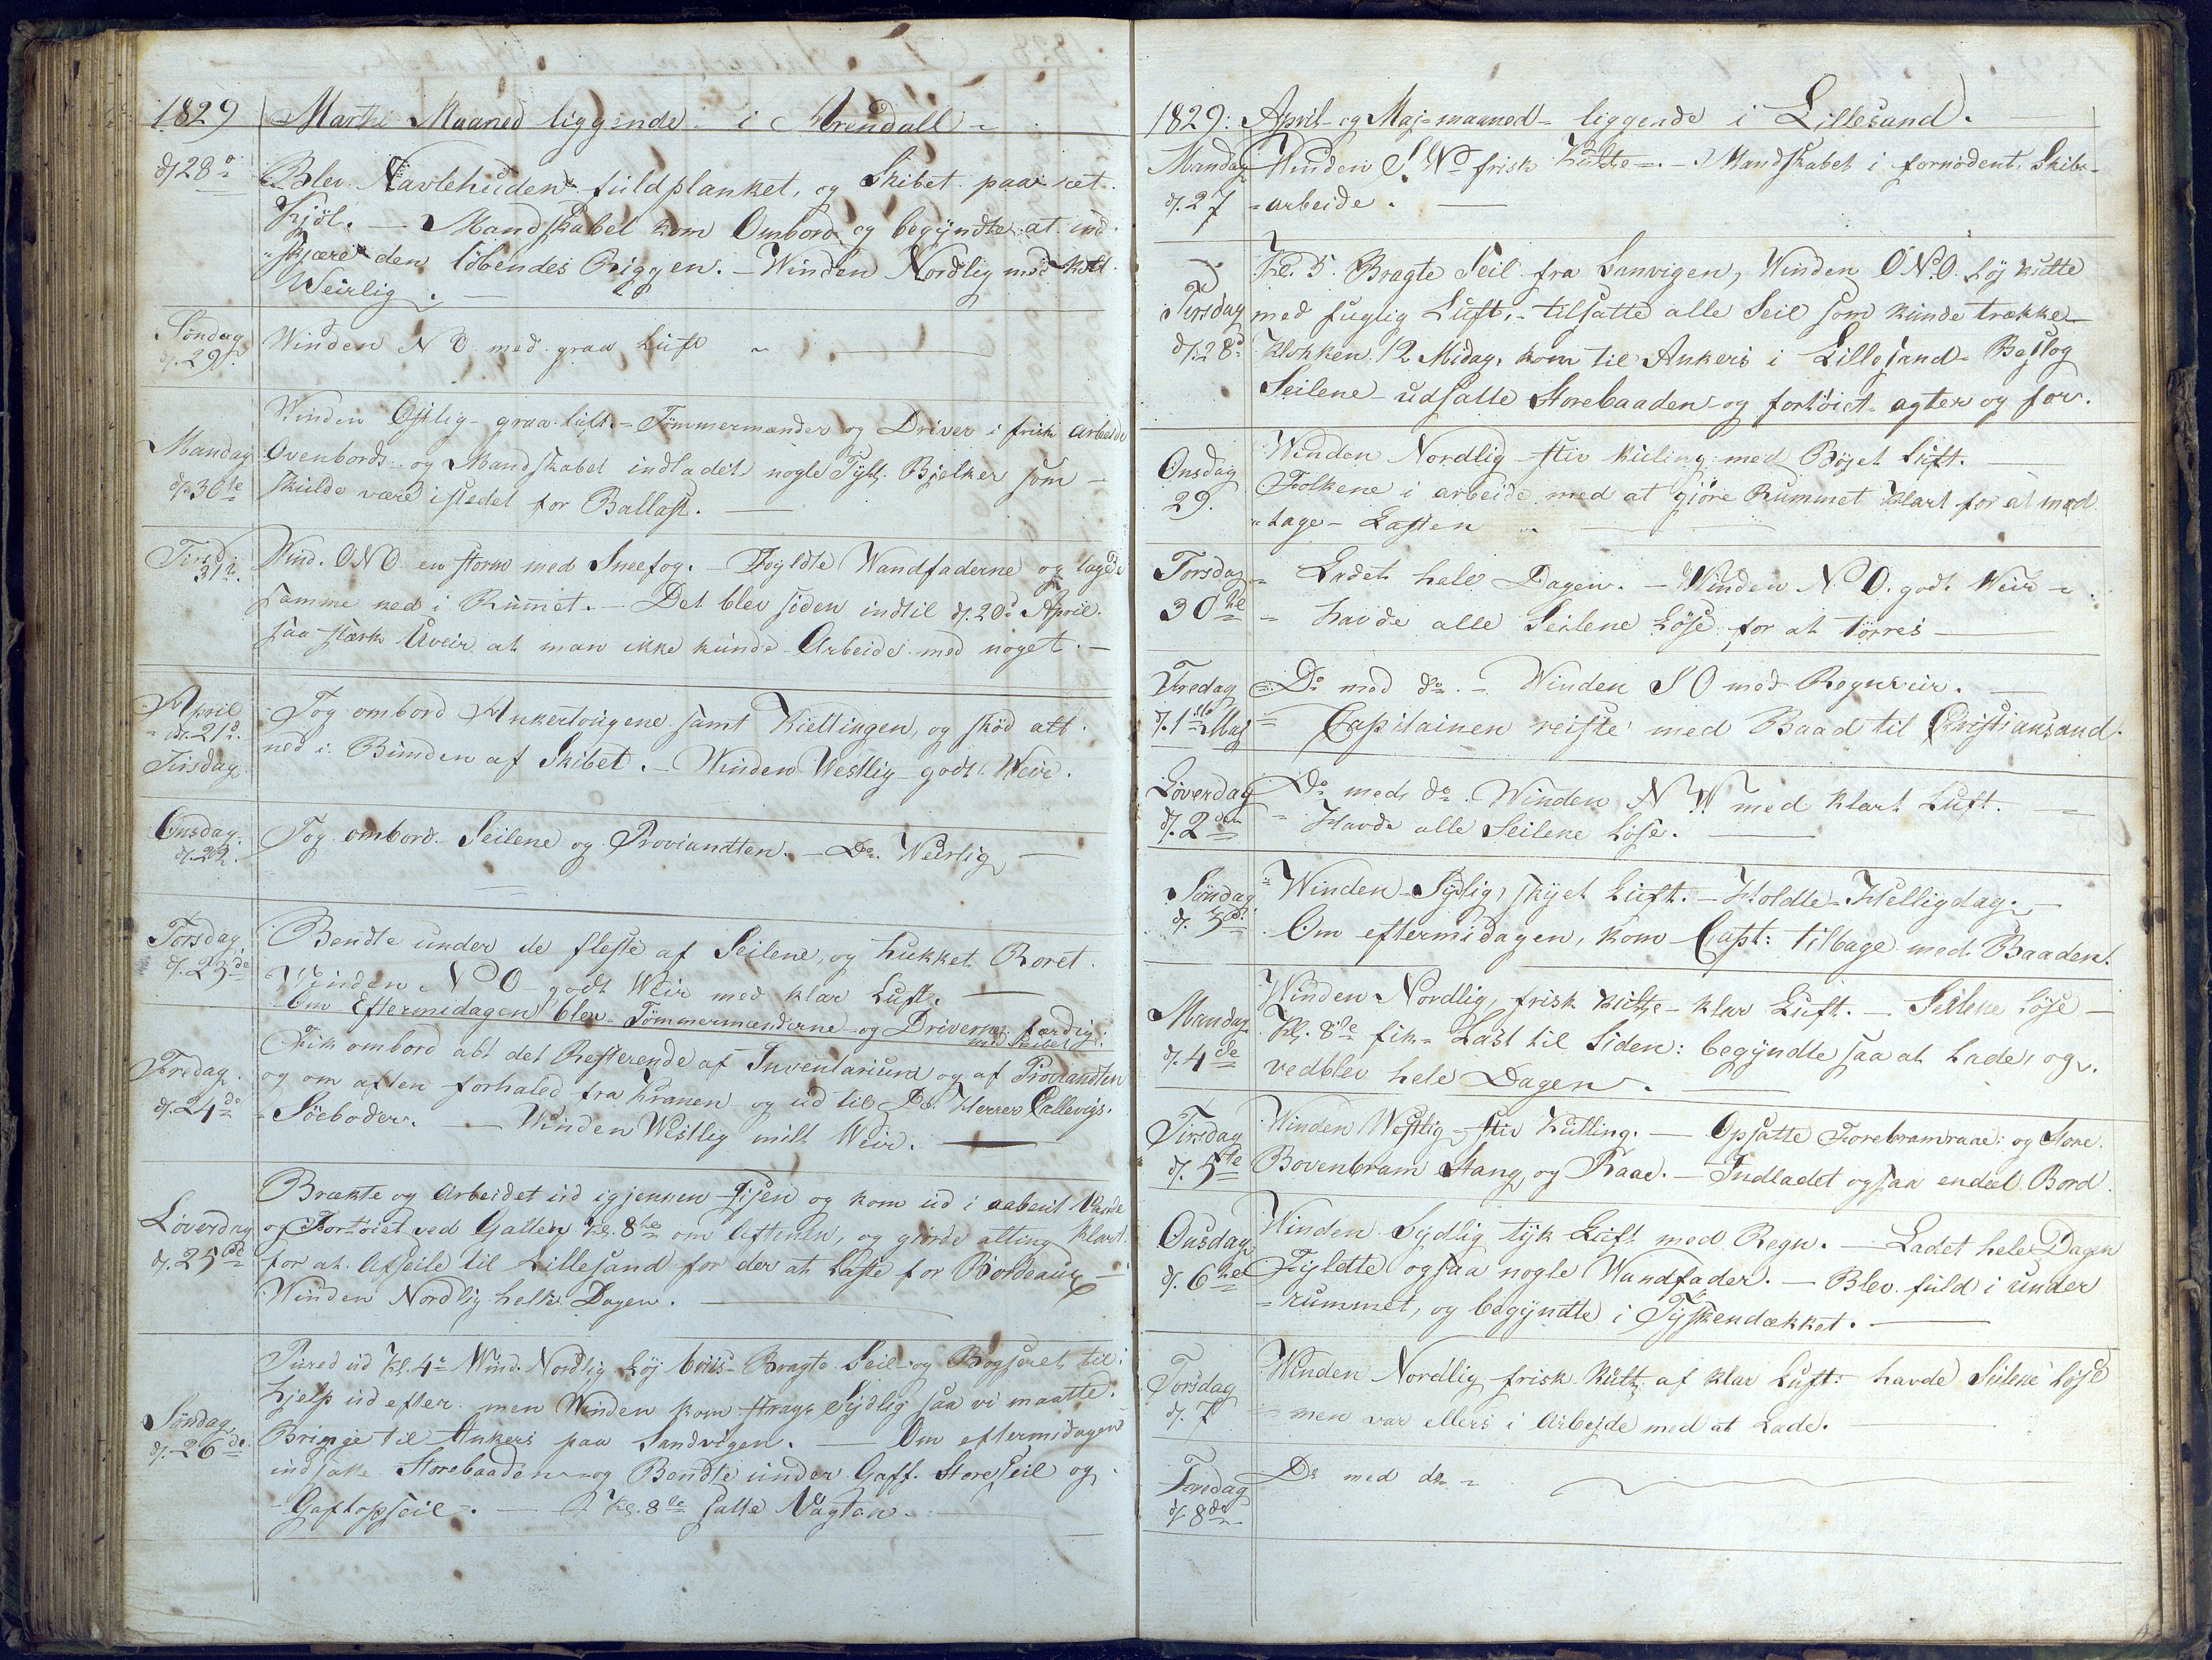 1829 Martii Maaned liggende i Arendall
d. 28de Blev Navlehuden fuldplanket, og Skibet paa ret
Kjøl. — Mandskabet kom Ombord og begyndte at ind
skjære den løbendes Riggen. — Winden Nordlig med kold
Weirlig. —
Søndag Winden N O med graa Luft
d. 29de
Winden Østlig graa luft. — Tømmermænder og Driver i frisk arbeide
Mandag Ovenbords og Mandskabet indladet nogle Tylt. Bjelker som
d. 30te skulde være istedet for Ballast. —
Tirsd. Wind. ONO en storm med Sneefog. — Foyldte Wandfaderne og lagde
31te samme ned i Rummet. — Det blev siden indtil d. 20de April
saa stærk Uveir at man ikke kunde Arbeide med noget. —
April Tog ombord Ankertougene samt Kiettingen, og skød alt
d. 21de ned i Bunden af Skibet. — Winden Westlig godt Weir.
Tirsdag
Onsdag Tog ombord Seilene og Proviandten. — Do. Weirlig —
d. 22
Torsdag Bendte under de fleste af Seilene, og hukket Roret.
d. 23de Winden N O godt Weir med klar Luft. —
Om Eftermidagen blev Tømmermænderne og Driverne færdig
med Skibet.
Fredag Fik ombord alt det Resterende af Inventarium og af Proviandten
og om aften forhaled fra Kranen og ud til De Herrer Callevigs
d. 24de Søeboder. — Winden Westlig milt Weir. —
Brækte og Arbeidet ud igjennem Jisen og kom ud i aabent Vande
Løverdag og Fortøiet ved Gallen Kl. 8te om Aftenen, og giorde alting klart
d. 25de for at Afseile til Lillesand for der at Laste for Bordeaux —
Winden Nordlig helle Dagen. —
Pured ud Kl. 4 Wind. Nordlig Løj briis — Bragte Seil og Bogseret til
hjelp ud efter men Winden kom strags Sydlig saa vi maatte
Søndag Bringe til Ankers paa Sandvigen. — Om eftermidagen
d. 26de indsatte Storebaaden og Bendte under Gaff. Store Seil og
Gaftopseil. — Kl. 8te satte Vagten.
1829: April og Maj maaned liggende i Lillesand.
Mandag Winden S W frisk Kulte. — Mandskabet i fornødent Skibs
d. 27 arbeide. —
Kl. 5. Bragte Seil fra Sanvigen, Winden ONO. Løj kulte
Tirsdag med fuglig Luft, — tilsatte alle Seil som kunde trække
d. 28de Klokken 12 Midag, kom til Ankers i Lillesand — Beslog
Seilene — udsatte Storebaaden og fortøiet agter og for.
Onsdag Winden Nordlig stiv kuling med Bøjet Luft.
29. Folkene i arbeide med at gjøre Rummet klart for at mod
tage Lasten —
Torsdag Ladet hele Dagen. — Winden N O. godt Weir
30te havde alle Seilene Løse for at tørres —
Fredag Do med do. — Winden S O med Regnveir. —
d. 1ste Maj Capitainen reiste med Baad til Christiansand.
Løverdag Do med do. Winden N W med klart Luft. —
d. 2den Havde alle Seilene Løse. —
Søndag Winden Sydlig, skyet Luft. — Holdte Helligdag. —
d. 3de Om eftermidagen, kom Capt: tilbage med Baaden.
Winden Nordlig, frisk kultje klar Luft. — Seilene løse —
Mandag Kl. 8te fik Last til Siden: begyndte saa at Lade, og
d. 4de vedblev hele Dagen. —
Tirsdag Winden Westlig stiv Kulling. — Opsatte Forebramraae: og Store
d. 5te Bovenbram Stang og Raae. — Indladet ogsaa endeel Bord.
Onsdag Winden Sydlig tyk Luft med Regn. — Ladet hele Dagen
d. 6te Fyldte ogsaa nogle Wandfader. — Blev fuld i under
rummet, og begyndte i Tyskendækket. —
Torsdag Winden Nordlig frisk Kult. af klar Luft. havde Seilene Løse
d. 7 men var ellers i Arbejde med at Lade. —
Fredag Do med do
d. 8de